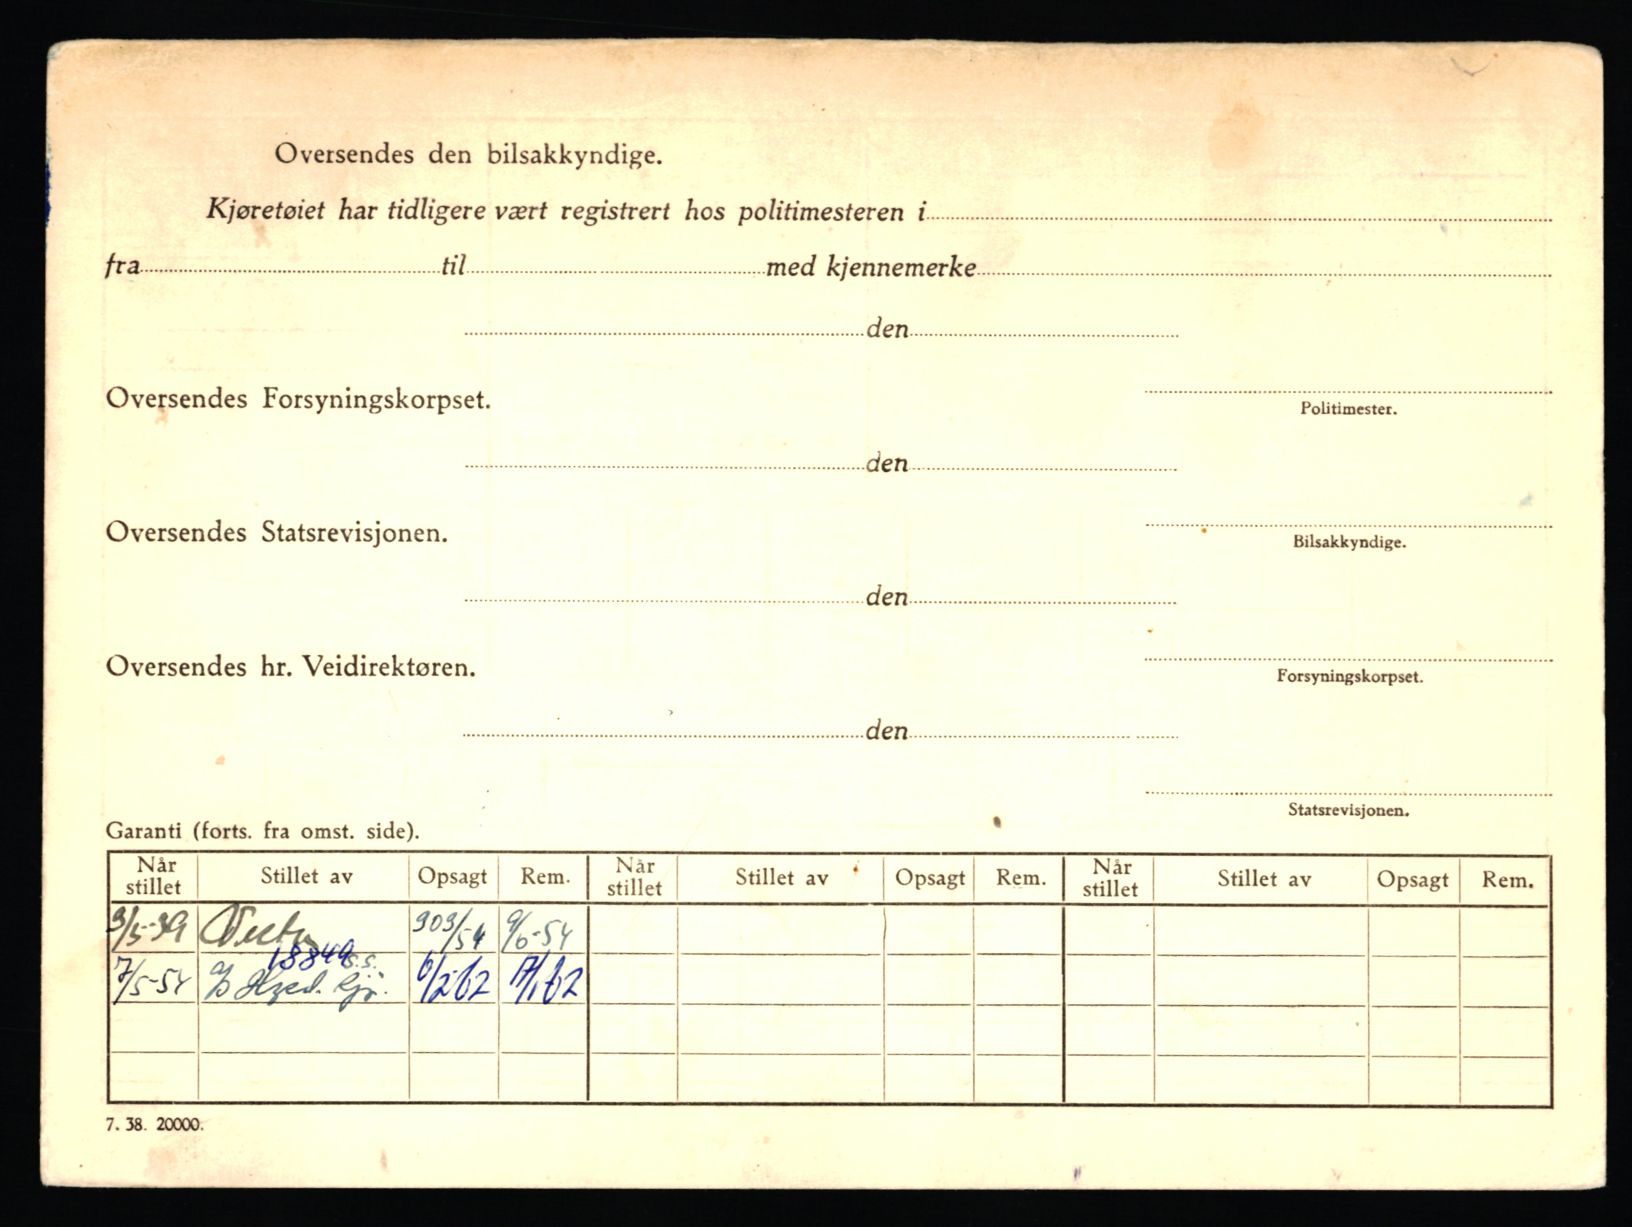 Oversendes den bilsakkyndige.
Kjøretøiet har tidligere vært registrert hos politimesteren i
fra til med kjennemerke
den
Oversendes Forsyningskorpset.
Politimester.
den
Oversendes Statsrevisjonen.
Bilsakkyndige.
den
Oversendes hr. Veidirektøren.
Forsyningskorpset.
den
Statsrevisjonen.
Garanti (forts. fra omst. side).
Når stillet Stillet av Opsagt Rem. Når stillet Stillet av Opsagt Rem. Når stillet Stillet av Opsagt Rem.
3/5-39 9/6-54
18849
7/5-54 6/2-62 17/1-62
7. 38. 20000.